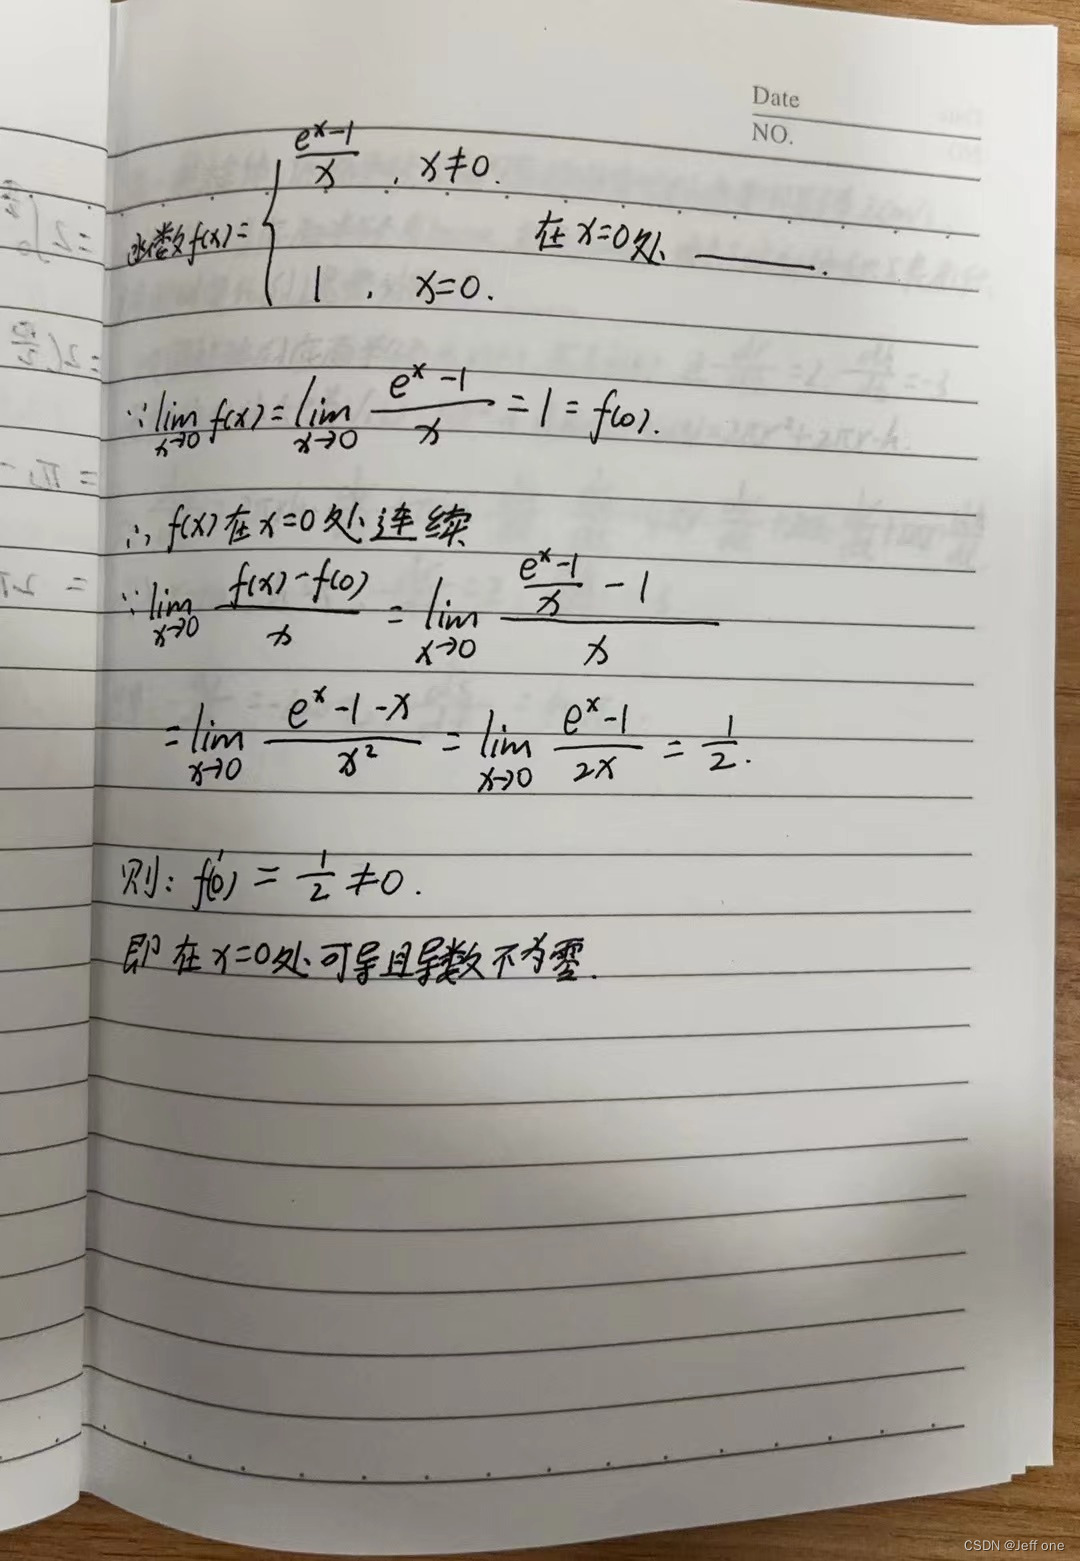 Date
NO.
函数f(x)= { (e^x-1)/x , x≠0. 1 , x=0. 在x=0处 ______.
∵ lim_{x→0} f(x) = lim_{x→0} (e^x-1)/x = 1 = f(0).
∴ f(x)在x=0处连续
∵ lim_{x→0} (f(x)-f(0))/x = lim_{x→0} ((e^x-1)/x - 1)/x
= lim_{x→0} (e^x-1-x)/x² = lim_{x→0} (e^x-1)/2x = 1/2.
则: f'(0) = 1/2 ≠0.
即在x=0处可导且导数不为零.
CSDN @Jeff one